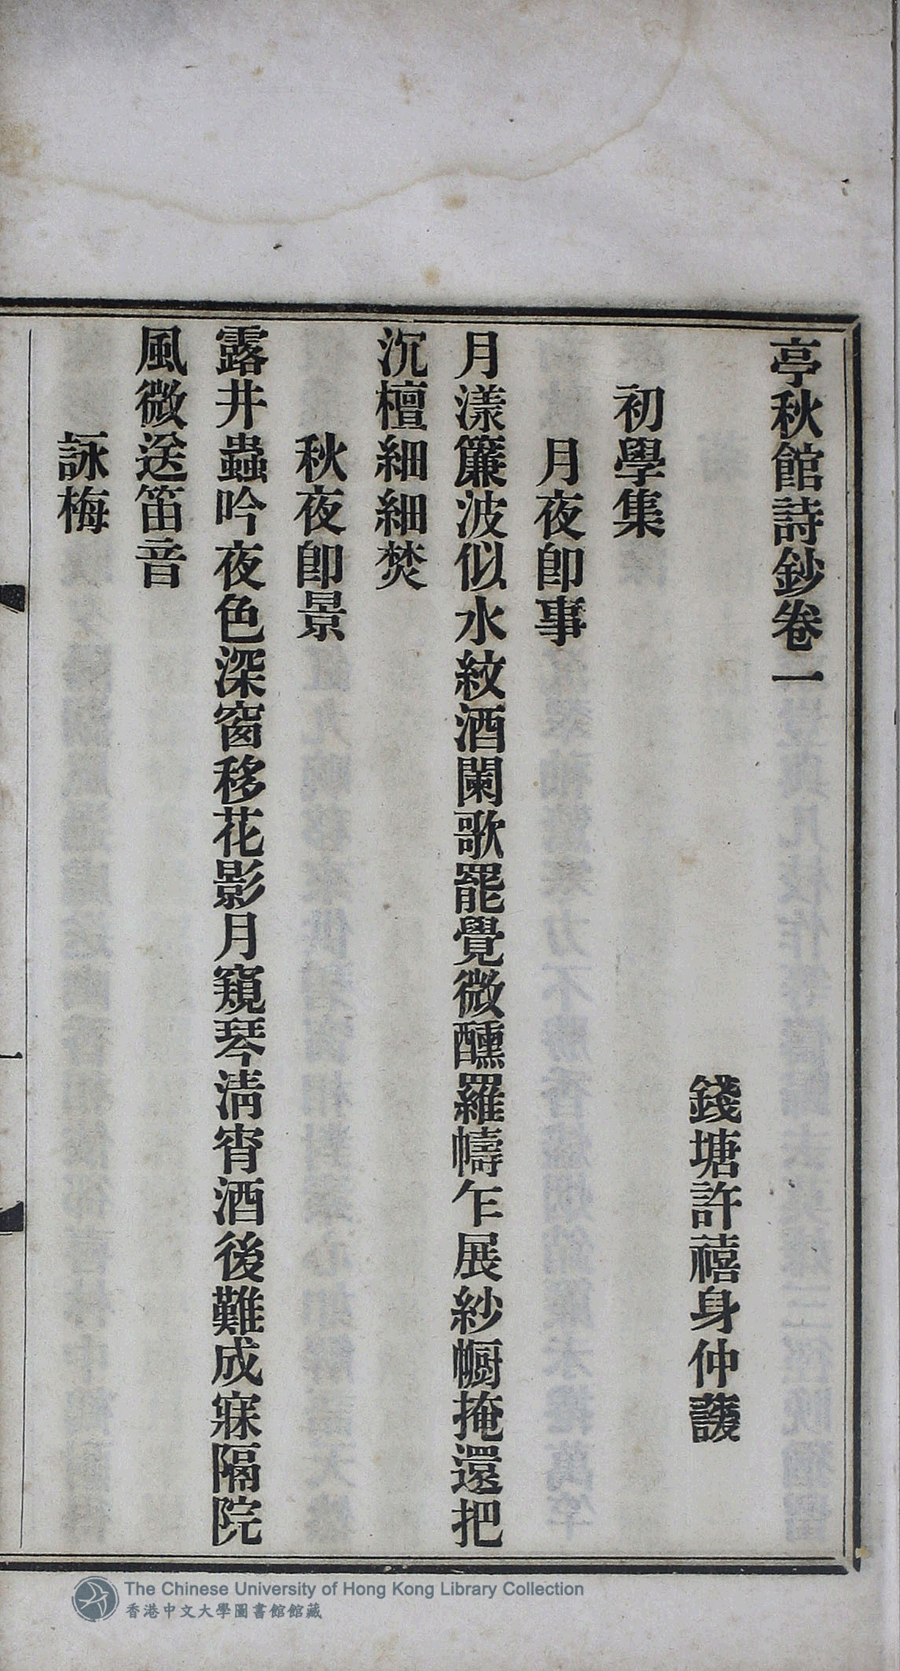 亭秋館詩鈔卷一
錢塘許禧身仲諼
初學集
月夜卽事
月漾簾波似水紋酒闌歌罷覺微醺羅幬乍展紗幮掩還把
沉檀細細焚
秋夜卽景
露井蟲吟夜色深窗移花影月窺琴淸宵酒後難成寐隔院
風微送笛音
詠梅
一
The Chinese University of Hong Kong Library Collection
香港中文大學圖書館館藏